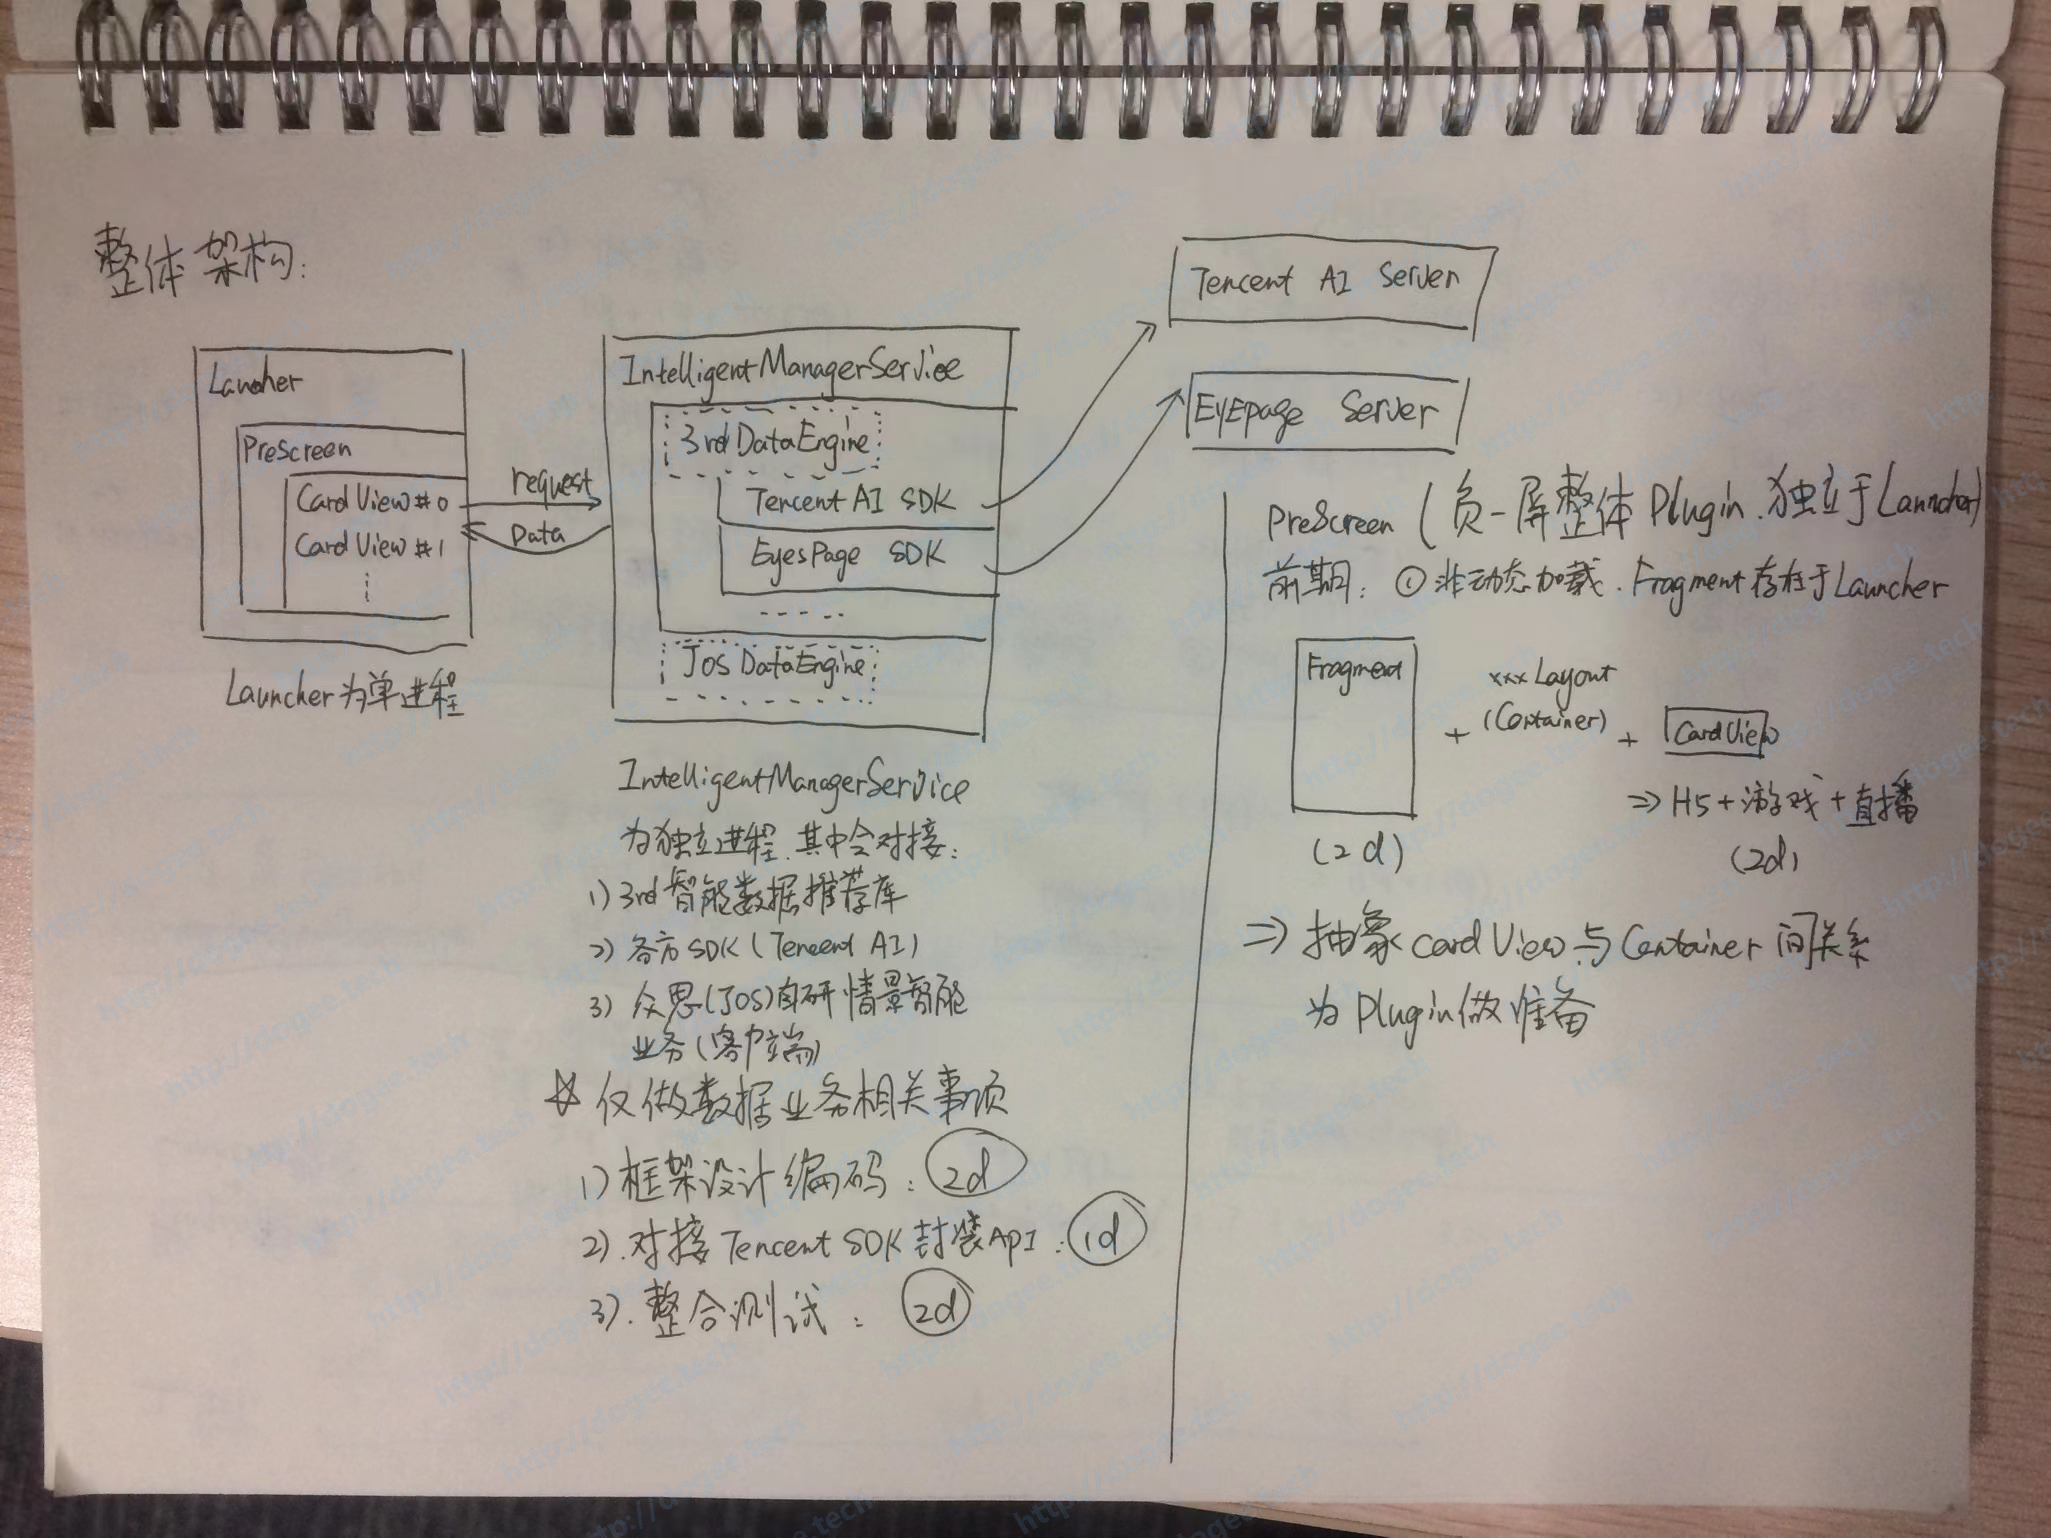 整体架构:
Launcher
PreScreen
Card View #0
Card View #1
request
Data
Launcher为单进程
IntelligentManagerService
3rd DataEngine
Tencent AI SDK
EyesPage SDK
JOS DataEngine
Tencent AI Server
EyEpage Server
IntelligentManagerService
为独立进程.其中会对接:
1) 3rd智能数据推荐库
2) 各方SDK (Tencent AI)
3) 众思(JOS)自研情景智能
业务(客户端)
☆ 仅做数据业务相关事项
1) 框架设计编码: 2d
2). 对接Tencent SDK封装API: 1d
3). 整合测试: 2d
PreScreen (负一屏整体Plugin.独立于Launcher)
前期: ① 非动态加载.Fragment存在于Launcher
Fragment
+
xxxLayout
(Container)
+
CardView
⇒ H5+游戏+直播
(2d)
(2d)
⇒ 抽象cardView与Container间关系
为Plugin做准备
http://dogee.tech